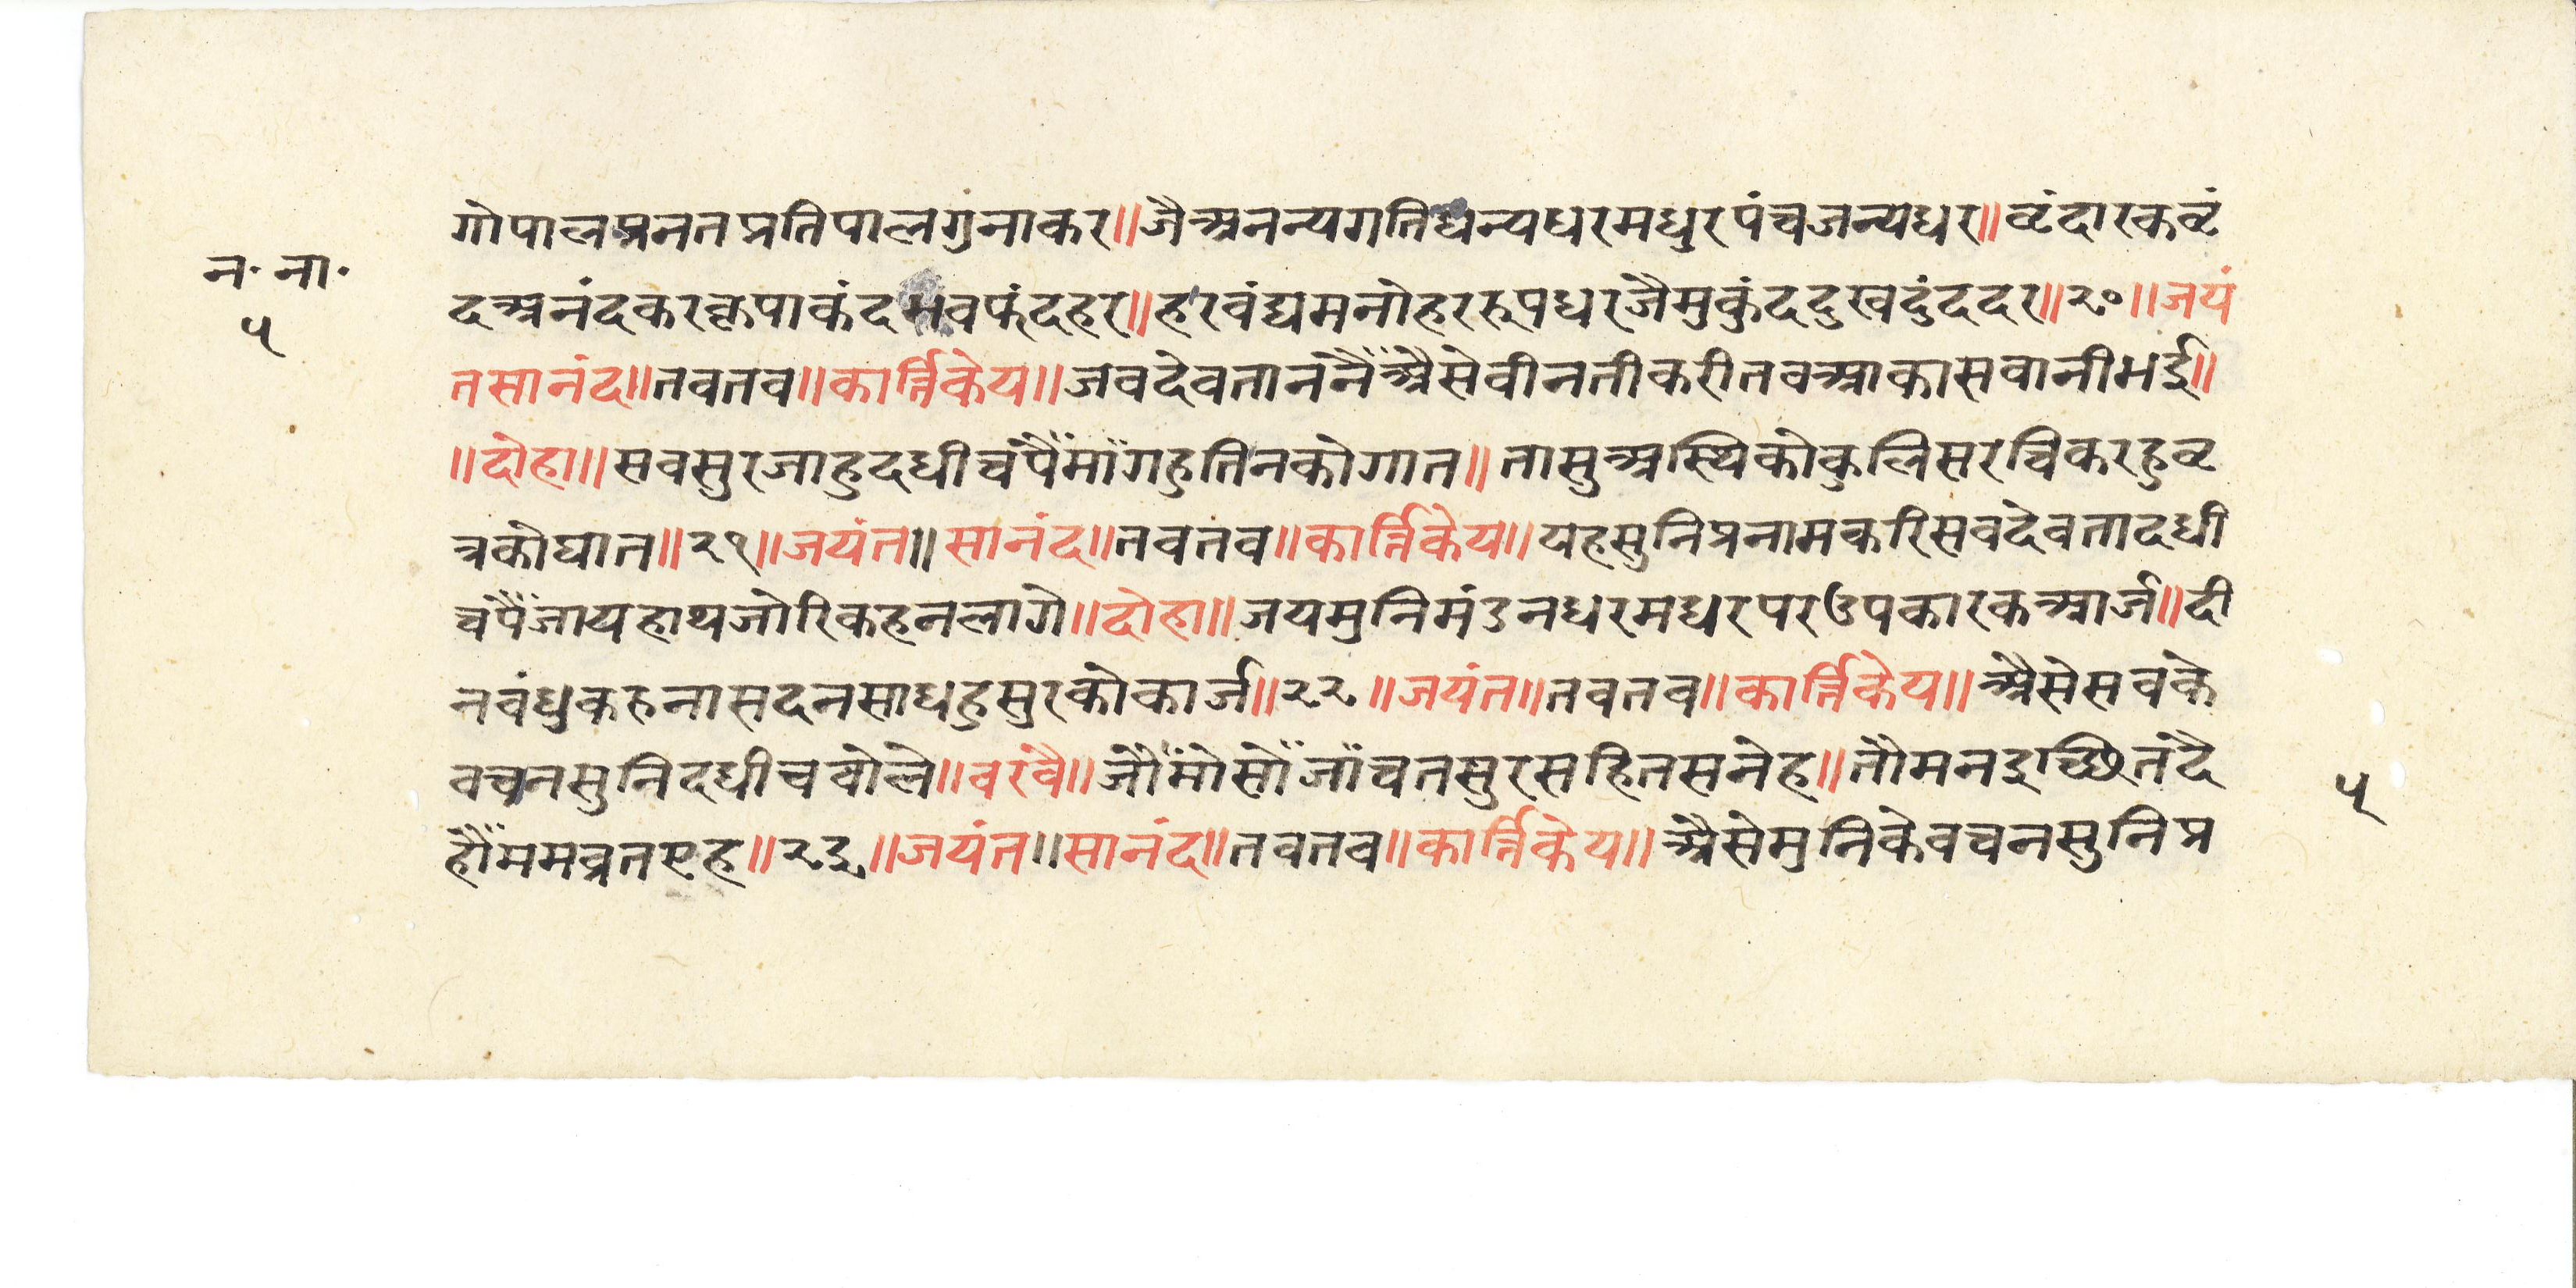 गोपालप्रनतप्रतिपालगुंनाकर॥जैअनन्यगतिधन्यधरमधुरपंचजन्यधर॥वृंदारकवृं
न॰ ना॰
५
दअनंदकरकृपाकंदभवफंदहर॥हरवंद्यमनोहररूपधरजैमुकुंददुखदुंददर॥२०॥जयं
तसानंद॥तवतव॥कार्त्तिकेय॥जवदेवतानंनैंअैसेवीनतीकरीतवआकासवानीभई॥
॥दोहा॥सवसुरजाहुदधीचंपैंमाँगहुतिनकोगात॥तासुअस्थिकोकुलिसरचिकरहुवृ
त्रकोघात॥२१॥जयंत॥सानंद॥तवतव॥कार्त्तिकेय॥यहसुनिप्रनामकरिसवदेवतादधी
चंपैंजायहाथजोरिकहनलागे॥दोहा॥जयमुनिमंडनधरमधरपरउपकारकआर्ज॥दी
नवंधुकरुनासदनसाधहुसुरकोकार्ज॥२२॥जयंत॥तवतव॥कार्त्तिकेय॥अैसेसवके
वचनसुनिदधीचवोले॥वरवै॥जौंमोसोंजाँचतसुरसहितसनेह॥तौमनइच्छितदै
हौंममव्रतएह॥२३॥जयंत॥सानंद॥तवतव॥कार्त्तिकेय॥अैसेमुनिकेवचनसुनिप्र
५